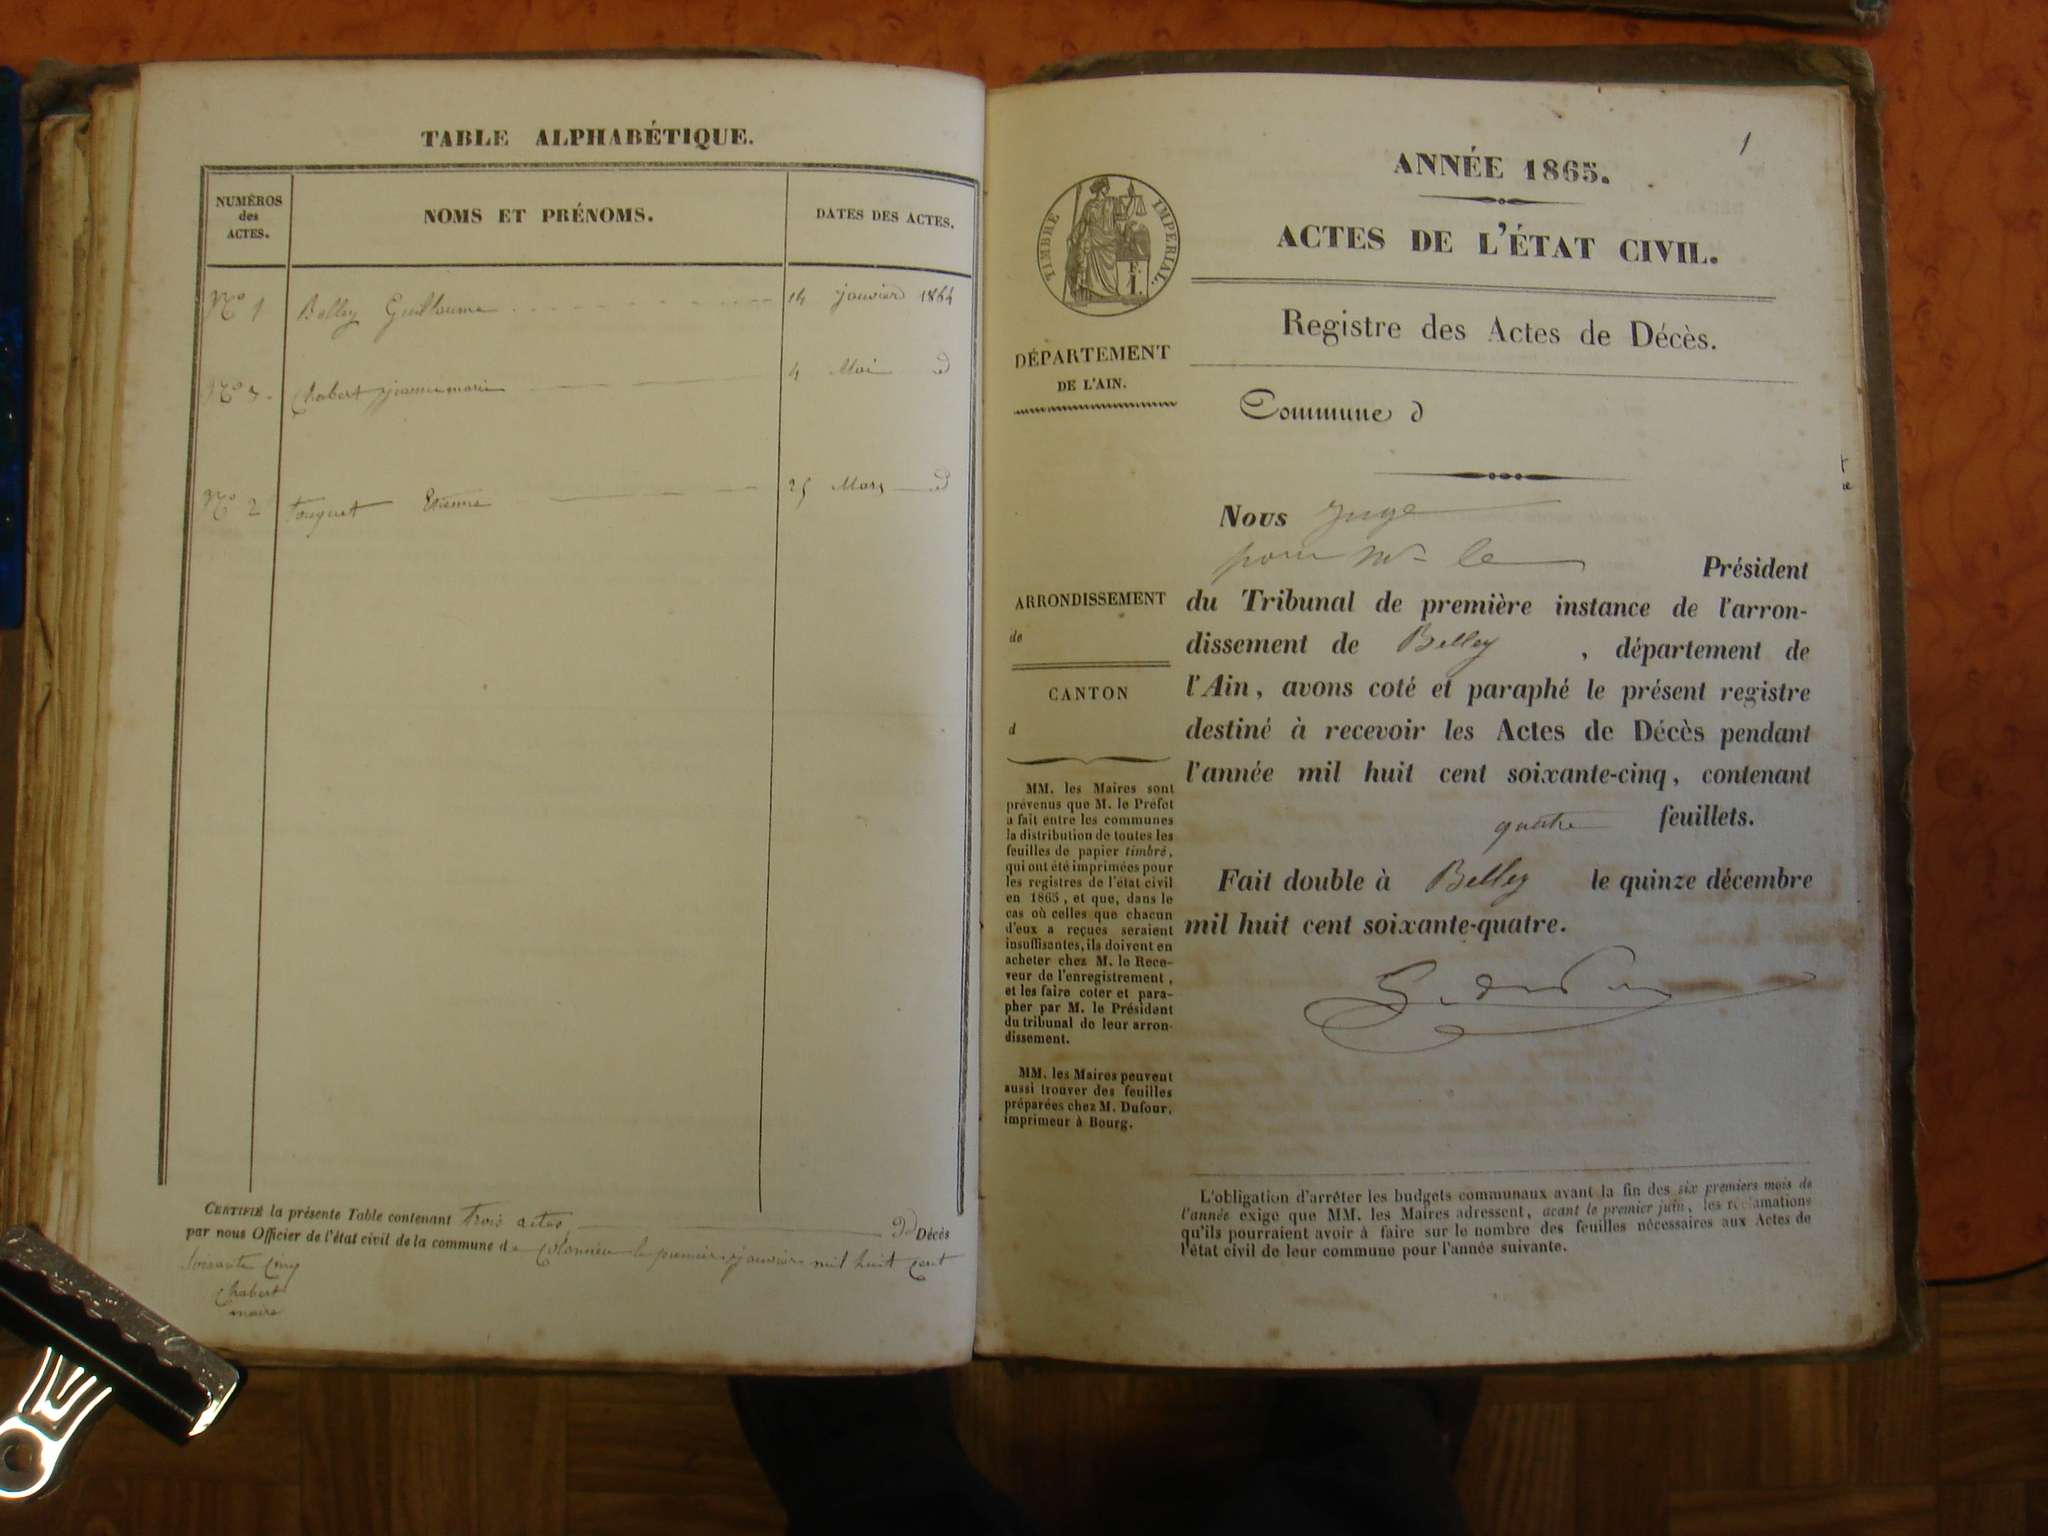 TABLE ALPHABÉTIQUE.
NUMÉROS
des
ACTES.
NOMS ET PRÉNOMS.
DATES DES ACTES.
No 1 Belley Guillaume 14 janvier 1864
No 3. Chabert jeanne marie 4 Mai id
No 2 Fouquet Etienne 25 Mars id
CERTIFIÉ la présente Table contenant trois actes de Décès
par nous Officier de l'état civil de la commune de Colomieu le premier janvier mil huit cent
soixante cinq
Chabert
maire
1
ANNÉE 1865.
ACTES DE L'ÉTAT CIVIL.
TIMBRE IMPERIAL.
F.
1.
Registre des Actes de Décès.
DÉPARTEMENT
DE L'AIN.
Commune d
Nous Juge
pour Mr le Président
ARRONDISSEMENT
de
du Tribunal de première instance de l'arron-
dissement de Belley , département de
l'Ain, avons coté et paraphé le présent registre
destiné à recevoir les Actes de Décès pendant
l'année mil huit cent soixante-cinq, contenant
quatre feuillets.
Fait double à Belley le quinze décembre
mil huit cent soixante-quatre.
CANTON
d
MM. les Maires sont
prévenus que M. le Préfet
a fait entre les communes
la distribution de toutes les
feuilles de papier timbré,
qui ont été imprimées pour
les registres de l'état civil
en 1865, et que, dans le
cas où celles que chacun
d'eux a reçues seraient
insuffisantes, ils doivent en
acheter chez M. le Rece-
veur de l'enregistrement,
et les faire coter et para-
pher par M. le Président
du tribunal de leur arron-
dissement.
MM. les Maires peuvent
aussi trouver des feuilles
préparées chez M. Dufour,
imprimeur à Bourg.
L'obligation d'arrêter les budgets communaux avant la fin des six premiers mois de
l'année exige que MM. les Maires adressent, avant le premier juin, les réclamations
qu'ils pourraient avoir à faire sur le nombre des feuilles nécessaires aux Actes de
l'état civil de leur commune pour l'année suivante.